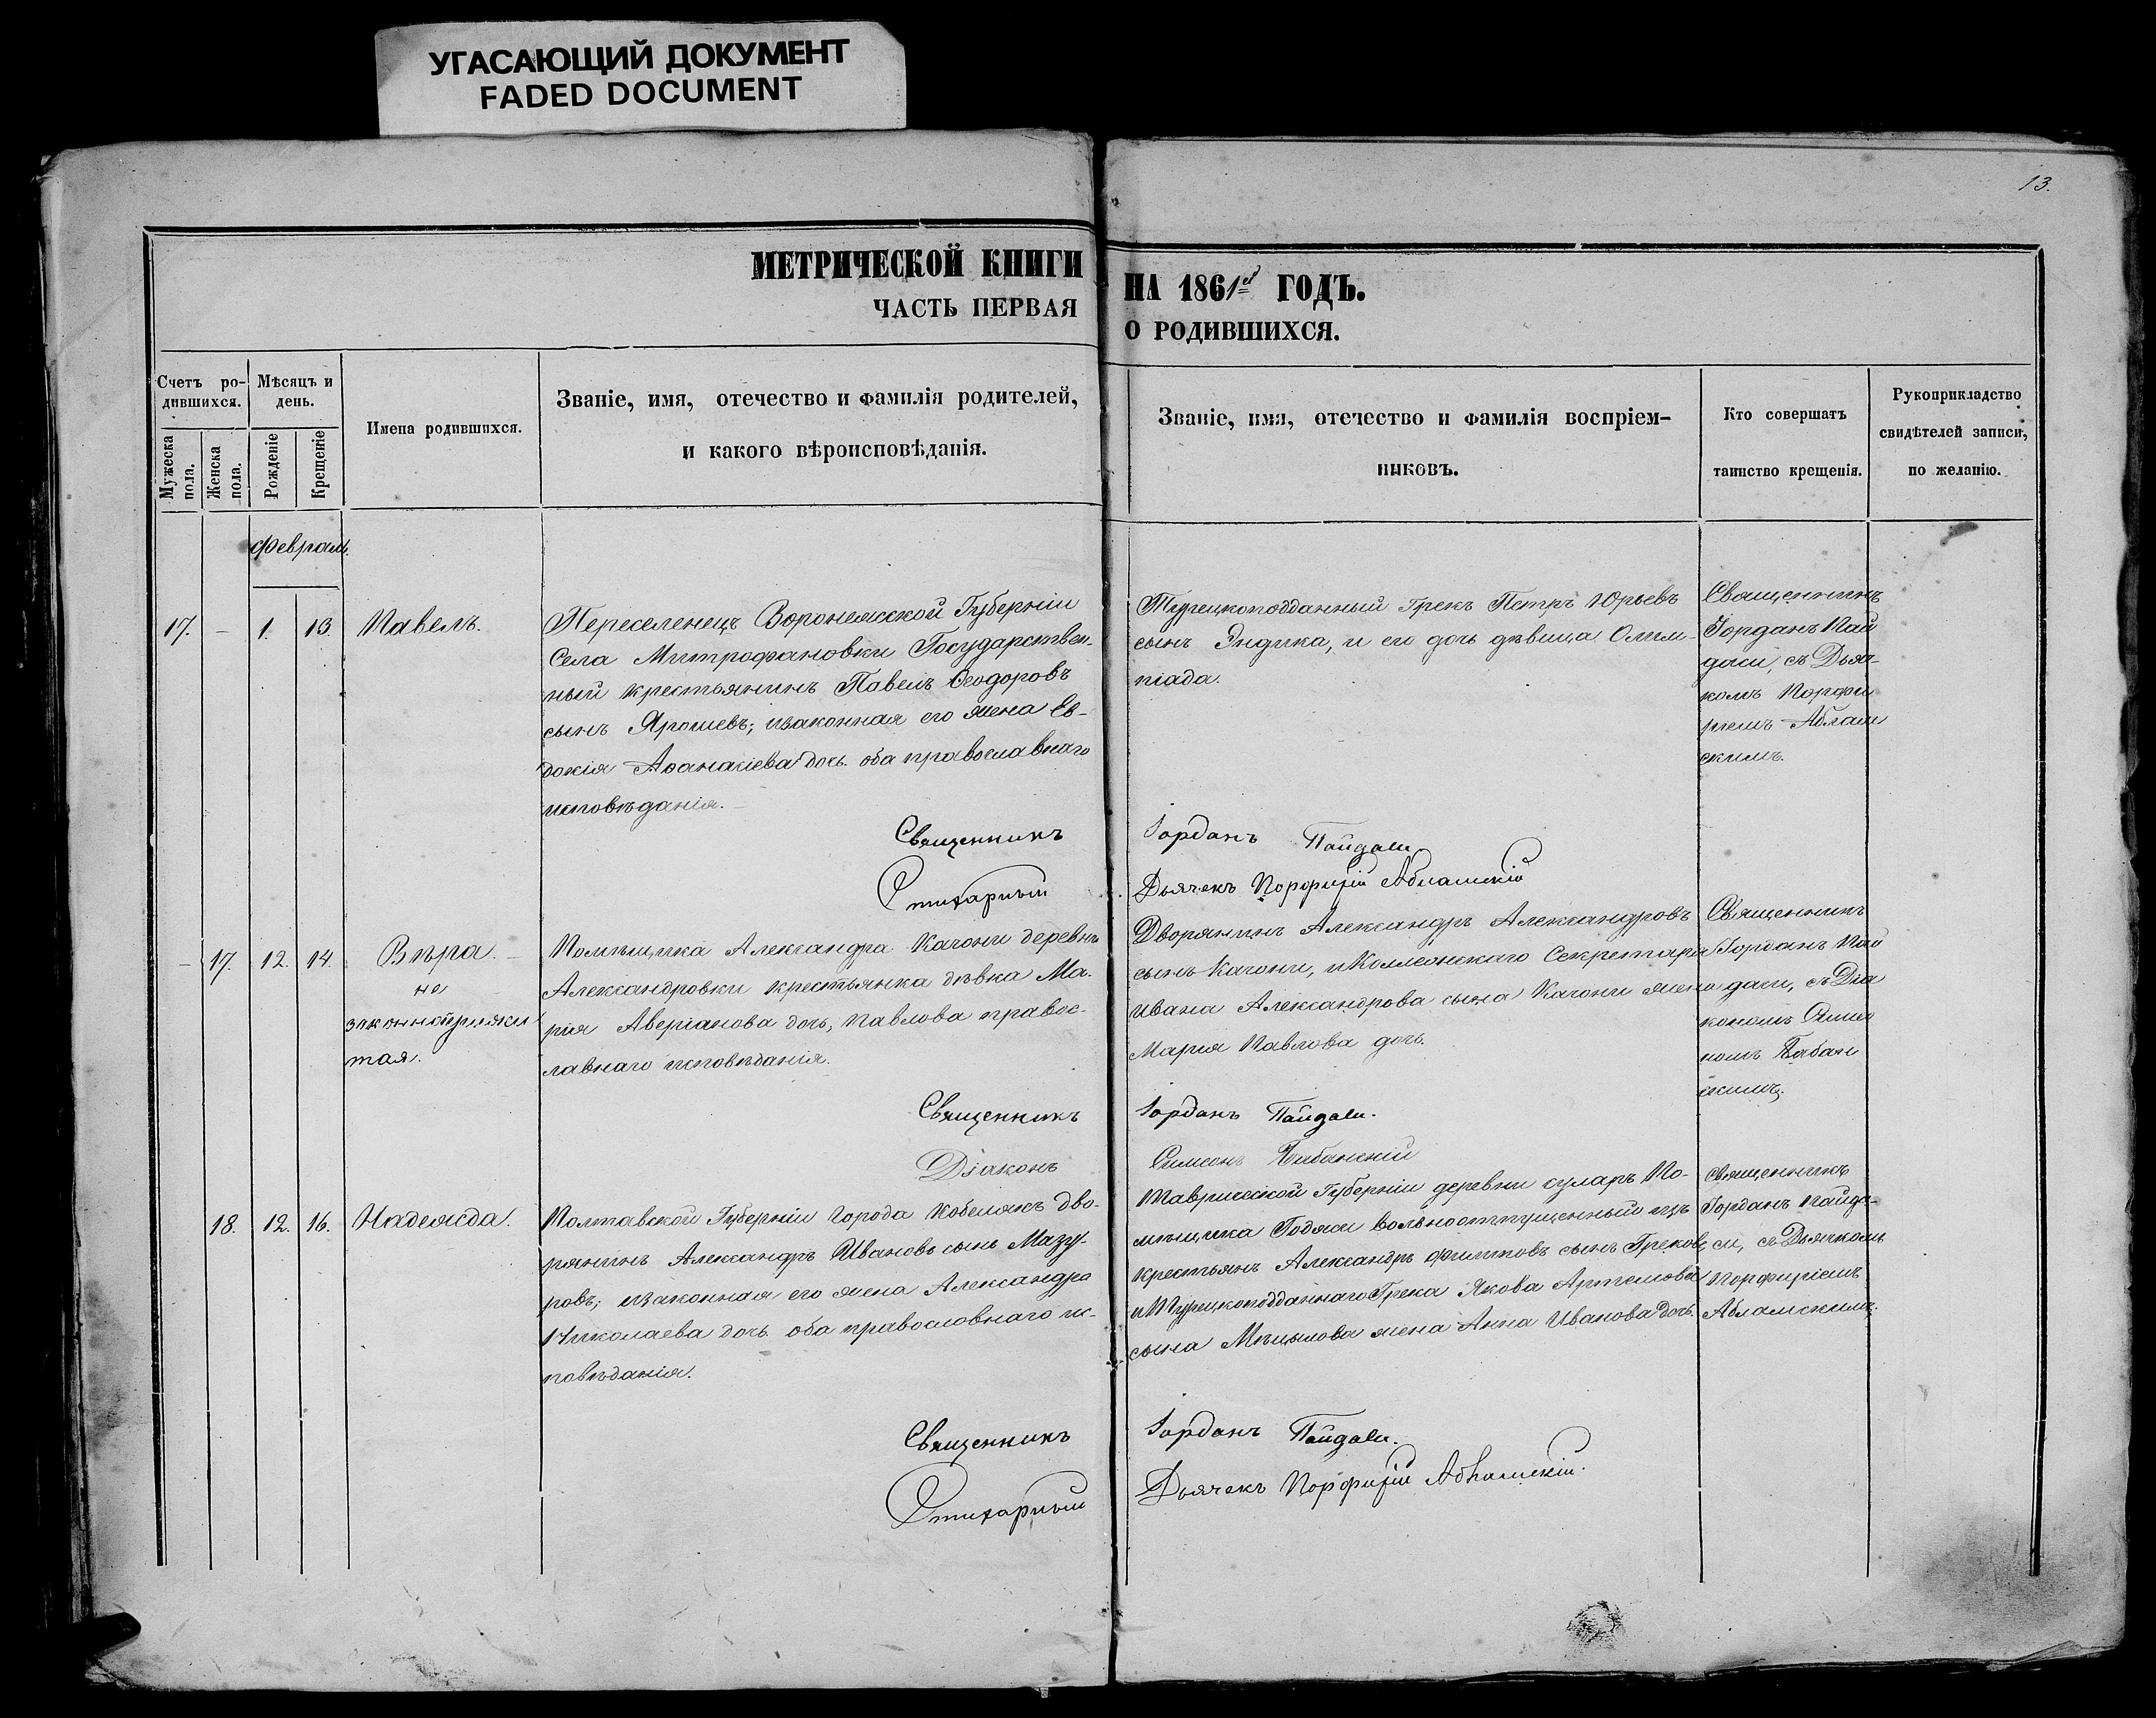 УГАСАЮЩИЙ ДОКУМЕНТ
FADED DOCUMENT
13.
МЕТРИЧЕСКОЙ КНИГИ
НА 1861й ГОДЪ.
ЧАСТЬ ПЕРВАЯ
О РОДИВШИХСЯ.
Счетъ ро-
дившихся.
Мужеска пола.
Женска пола.
Мѣсяцъ и
день.
Рожденіе
Крещеніе
Имена родившихся.
Званіе, имя, отечество и фамилія родителей,
и какого вѣроисповѣданія.
Званіе, имя, отечество и фамилія воспріем-
никовъ.
Кто совершатъ
таинство крещенія.
Рукоприкладство
свидѣтелей записи,
по желанію.
Феврал.
17. – 1. 13. Павелъ.
Переселенецъ Воронежской Губерніи
Села Митрофановки Государствен-
ный крестьянинъ Павелъ Ѳеодоровъ
сынъ Ярошевъ; изаконная его жена Ев-
докія Аѳанасіева дочь. оба православнаго
исповѣданія.
Турецкоподданный Грекъ Петръ Юрьевъ
сынъ Эндика, и его дочь дѣвица Олим-
піада.
Священникъ
Іорданъ Пай
даси, съ Дьяч-
комъ Порфи
ріемъ Аблам
скимъ.
Священникъ Іорданъ Пайдаси
Стихарный Дьячекъ Порфирій Абламскій
– 17. 12. 14. Вѣра. –
не
законнорижи
тая.
Помѣщика Александра Качони деревни
Александровки крестьянка дѣвка Ма-
рія Аверіанова дочь, Павлова правос-
лавнаго исповѣданія.
Дворянинъ Александръ Александровъ
сынъ Качони, и Коллежскаго Секретаря
Ивана Александрова сына Качони жена
Марія Павлова дочь.
Священникъ
Іорданъ Пай
даси, съ Діа
кономъ Симео
номъ Бабан
скимъ.
Священникъ Іорданъ Пайдаси.
Діаконъ Симеонъ Бабанскій
18. 12. 16. Надежда.
Полтавской Губерніи Города Кобелякъ дво-
рянинъ Александръ Ивановъ сынъ Мазу-
ровъ; изаконная его жена Александра
Николаева дочь. оба православнаго ис-
повѣданія.
Таврической Губерніи деревни суларъ По-
мѣщика Годжи вольноотпущенный изъ
крестьянъ Александръ Филиповъ сынъ Грековъ,
и Турецкоподданнаго Грека Якова Артемова
сына Мецылова жена Анна Иванова дочь.
Священникъ
Іорданъ Пайда-
си, съ Дьячкомъ
Порфиріемъ
Абламскимъ.
Священникъ Іорданъ Пайдаси.
Стихарный Дьячекъ Порфирій Абламскій.